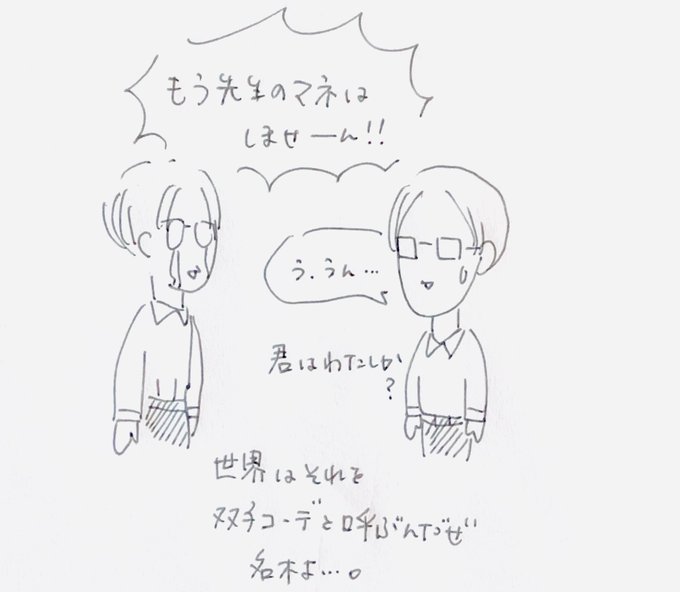 もう先生のマネは
しませーん!!
う、うん…
君はわたしか
?
世界はそれを
双子コーデと呼ぶんだぜ
名木よ…。